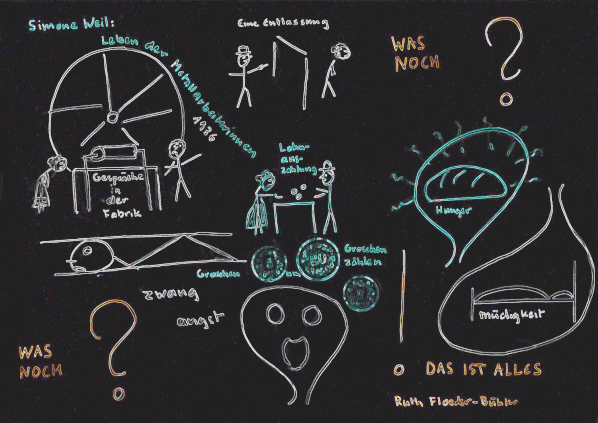 Simone Weil:
Leben der Metallarbeiterinnen
1936
Eine Entlassung
WAS
NOCH
?
Gespräche
in
der
Fabrik
Lohn-
aus-
zahlung
Hunger
Groschen
um
Groschen
zählen
zwang
angst
müdigkeit
WAS
NOCH
?
! DAS IST ALLES
Ruth